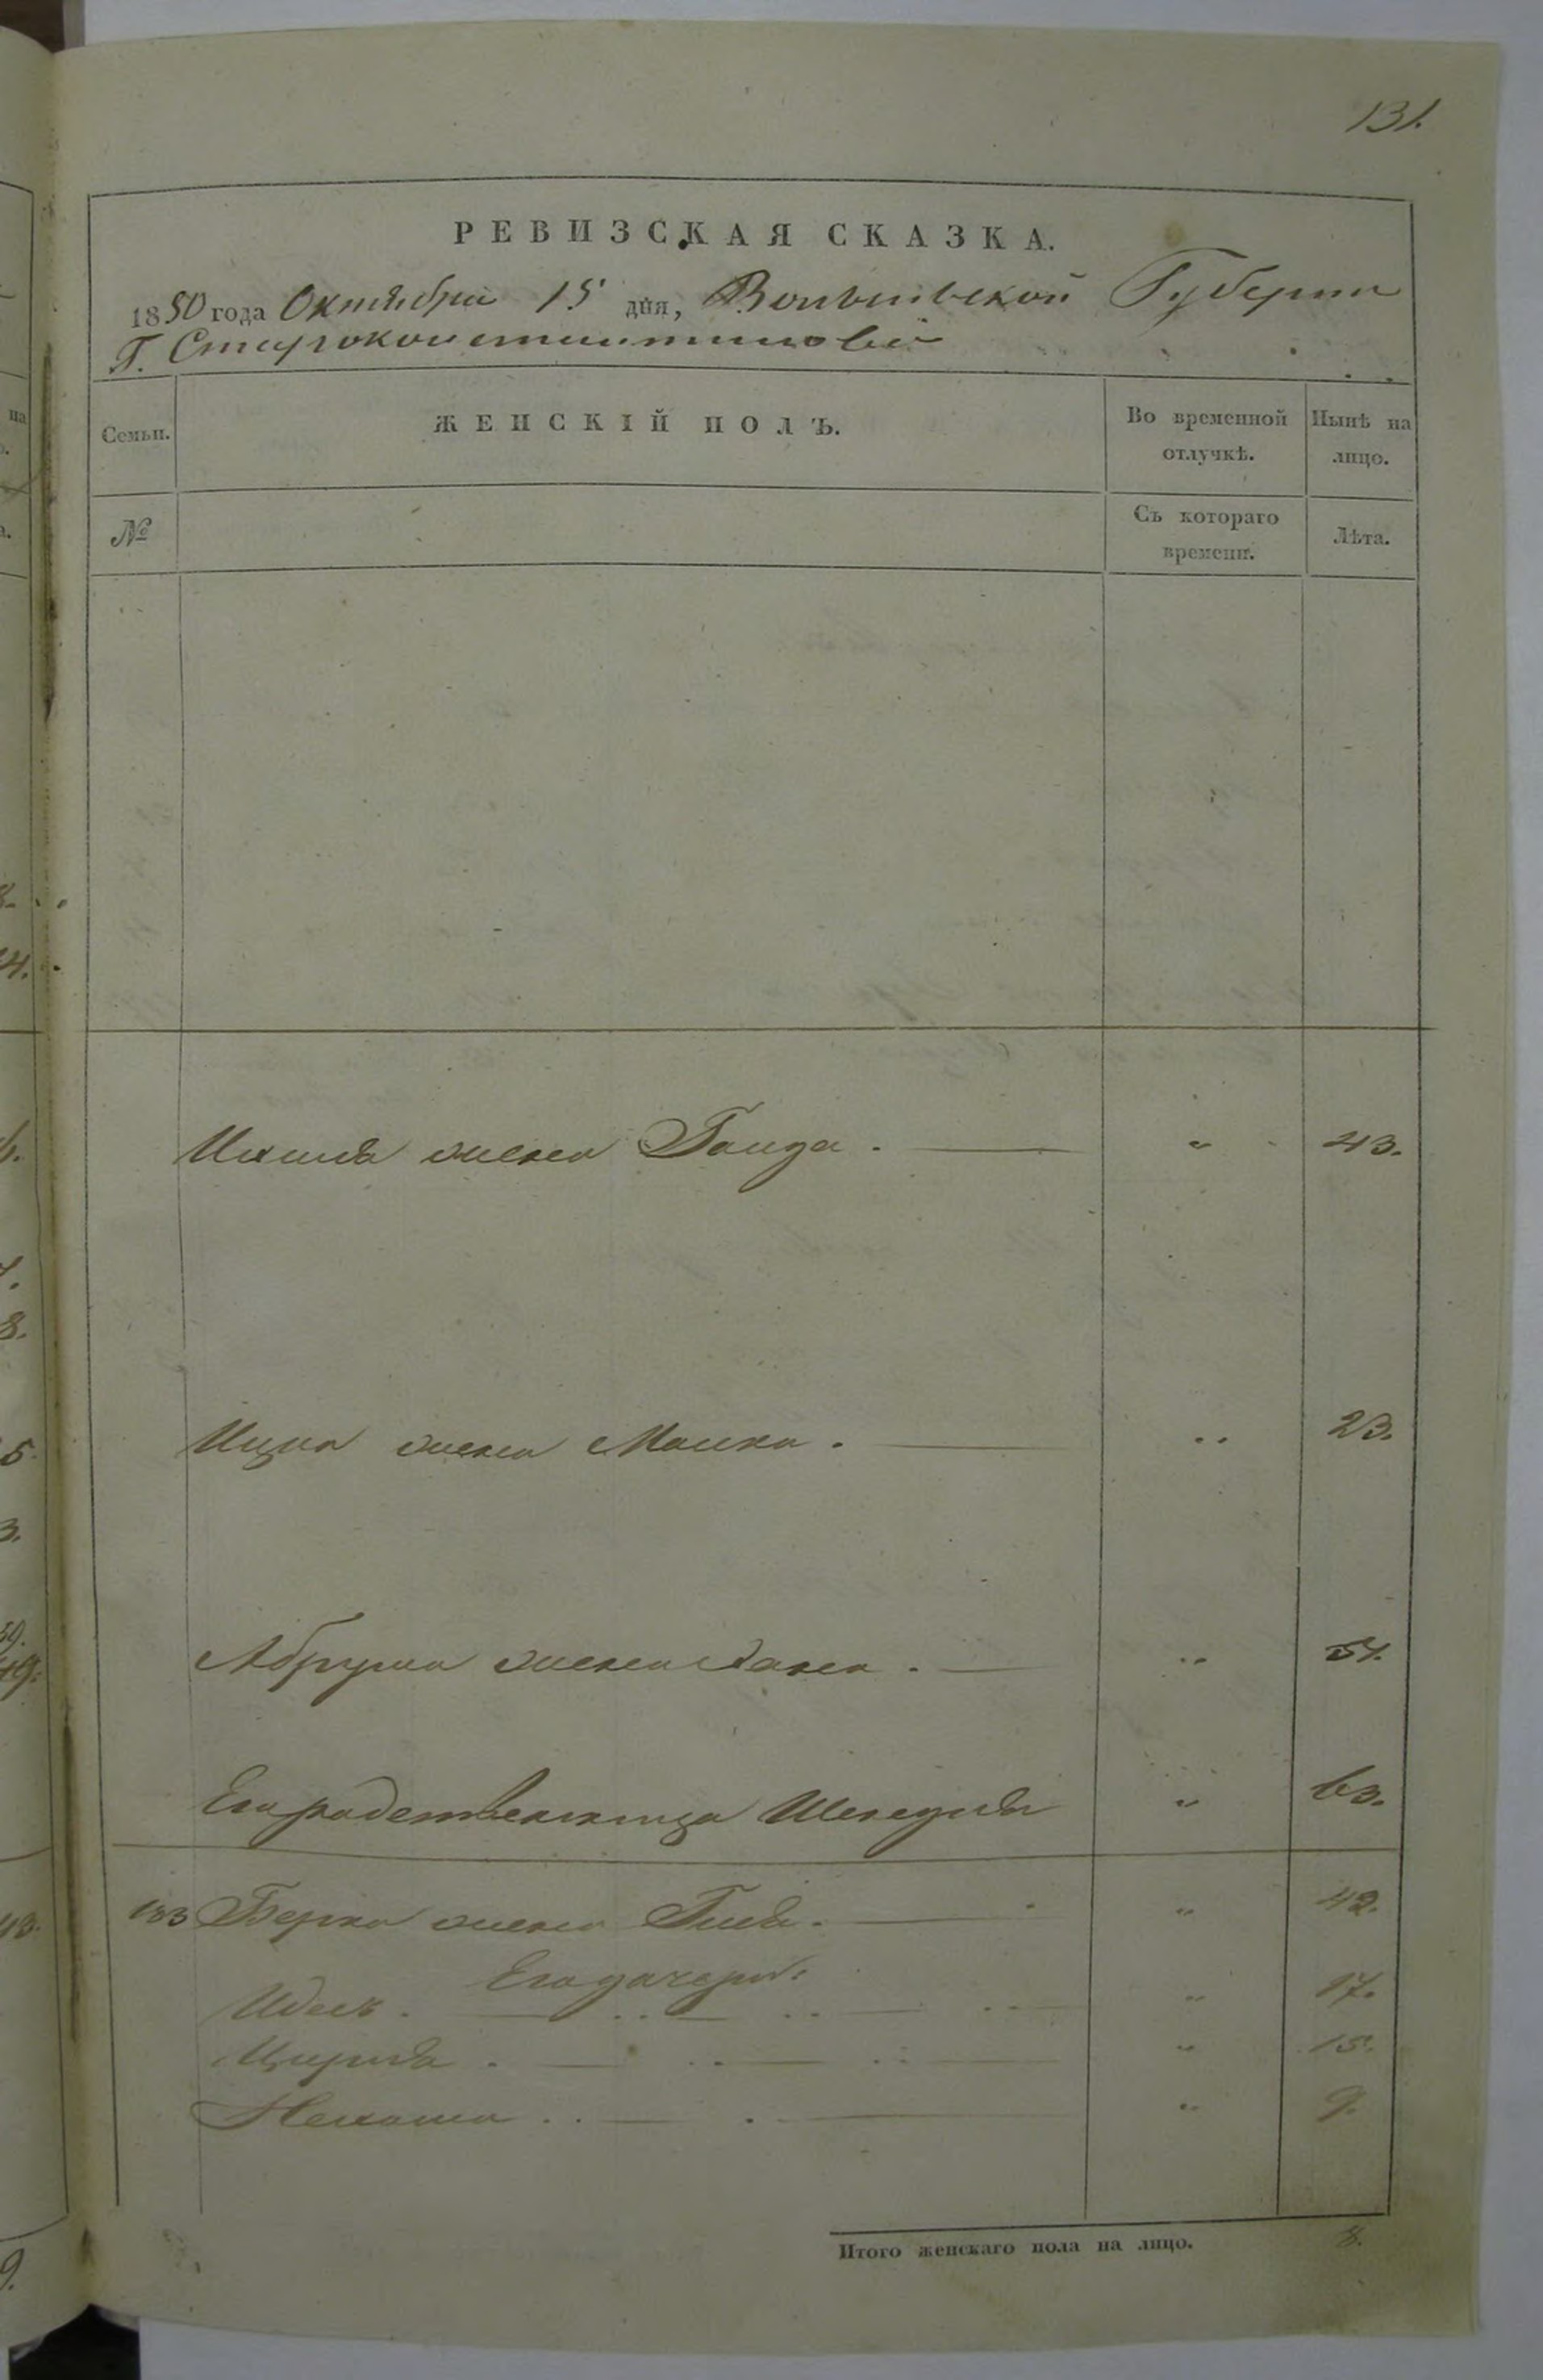 131.
РЕВИЗСКАЯ СКАЗКА.
1850 года Октября 15 дня, Волынской Губернии
Г. Староконстантинова
Семьи.
ЖЕНСКІЙ ПОЛЪ.
Во временной отлучкѣ.
Нынѣ на лицо.
№
Съ котораго времени.
Лѣта.
жена " 43.
Ицка жена Малка. " 23.
Абрума жена Хана. "
Его родственница " 63.
183 Берка жена " 42.
Его дочери:
Идесъ. " 17.
" 15.
Нехама " 9.
Итого женскаго пола на лицо. 8.